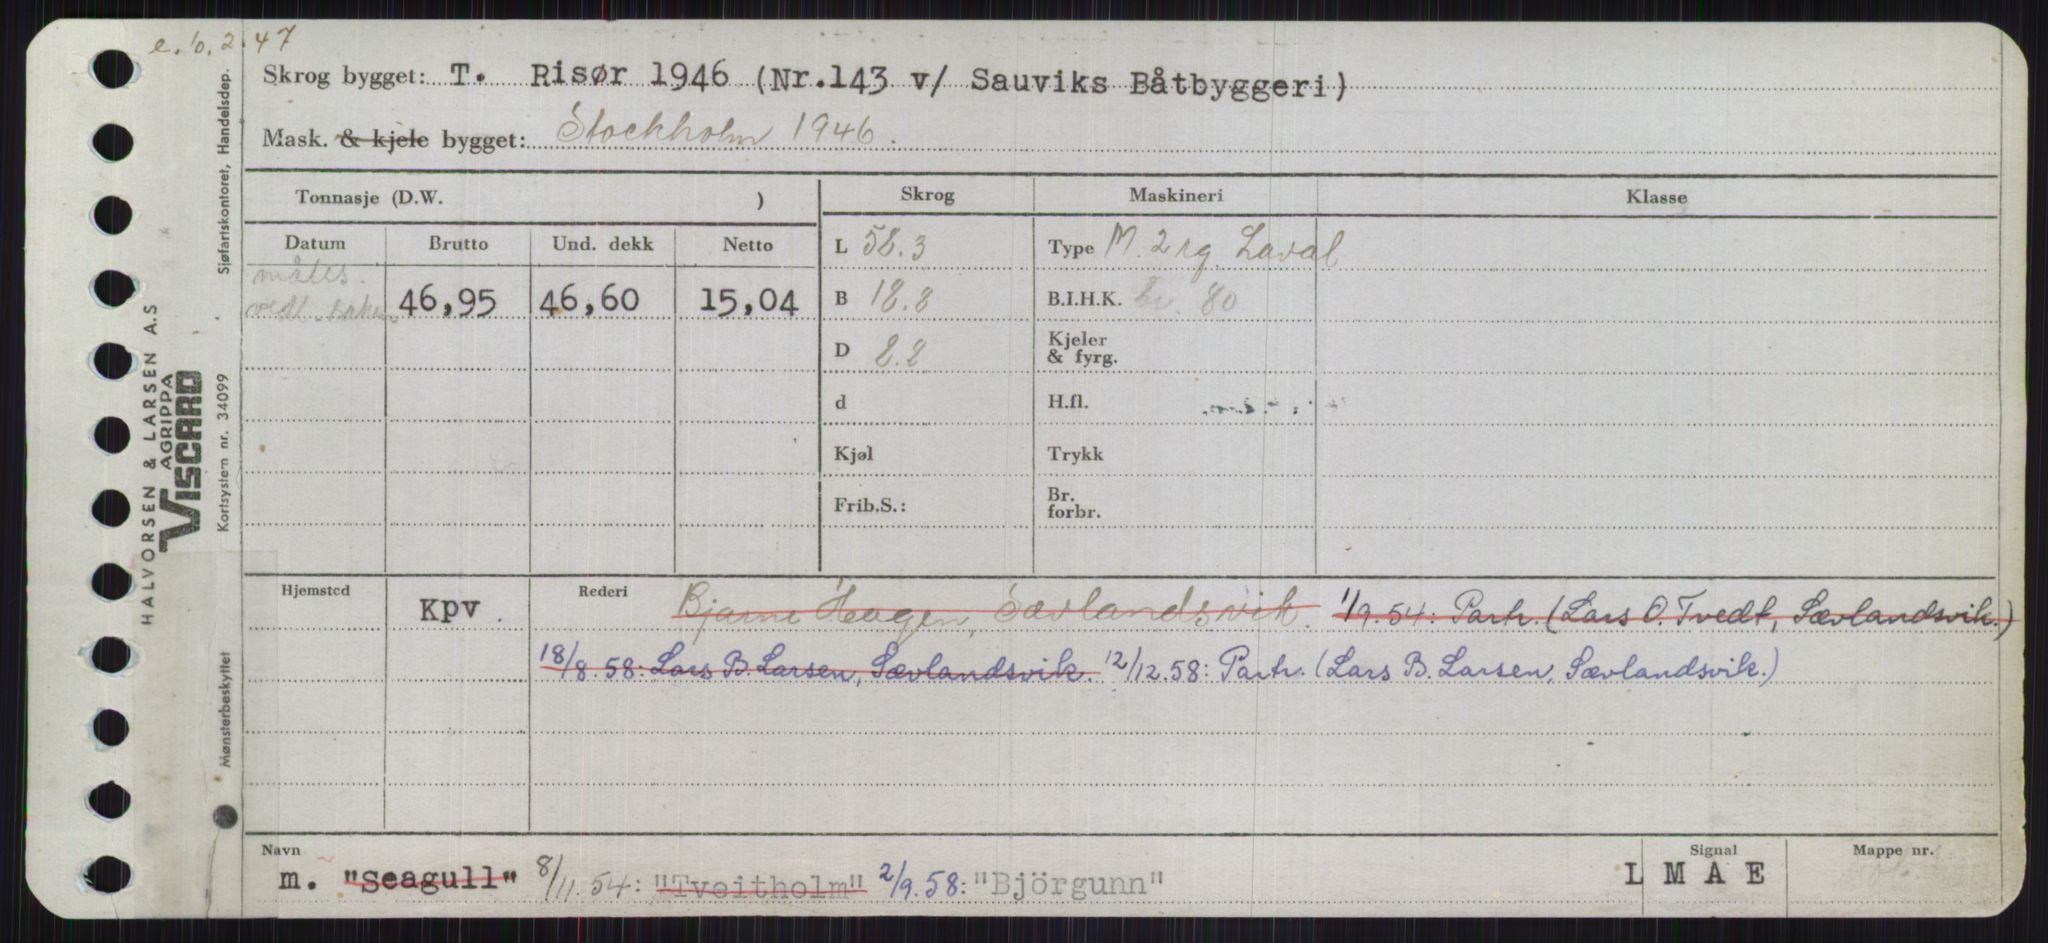 e. 10.2.47
Skrog bygget: T. Risør 1946 (Nr.143 v/ Sauviks Båtbyggeri)
Mask. & kjele bygget: Stockholm 1946.
Tonnasje (D.W. )
Skrog
Maskineri
Klasse
Datum
Brutto
Und. dekk
Netto
måles.
vedt.
46,95
46,60
15,04
L 58.3
B 18.8
D 8.8
d
Kjøl
Frib.S.:
Type M. 2 sg. Laval
B.I.H.K. 80
Kjeler
& fyrg.
H.fl.
Trykk
Br.
forbr.
Hjemsted
Kpv.
Rederi
Bjarne Haugen, Sævlandsvik. 1/9.54: Partr. (Lars O. Tvedt, Sævlandsvik.)
18/8.58: Lars B. Larsen, Sævlandsvik. 12/12.58: Partr. (Lars B. Larsen, Sævlandsvik.)
Navn
m. "Seagull" 8/11.54: "Tveitholm" 2/9.58: "Björgunn"
Signal
L M A E
Mappe nr.
HALVORSEN & LARSEN A.S
AGRIPPA
VISCARD
Sjøfartskontoret, Handelsdep.
Kortsystem nr. 34099
Mønsterbeskyttet